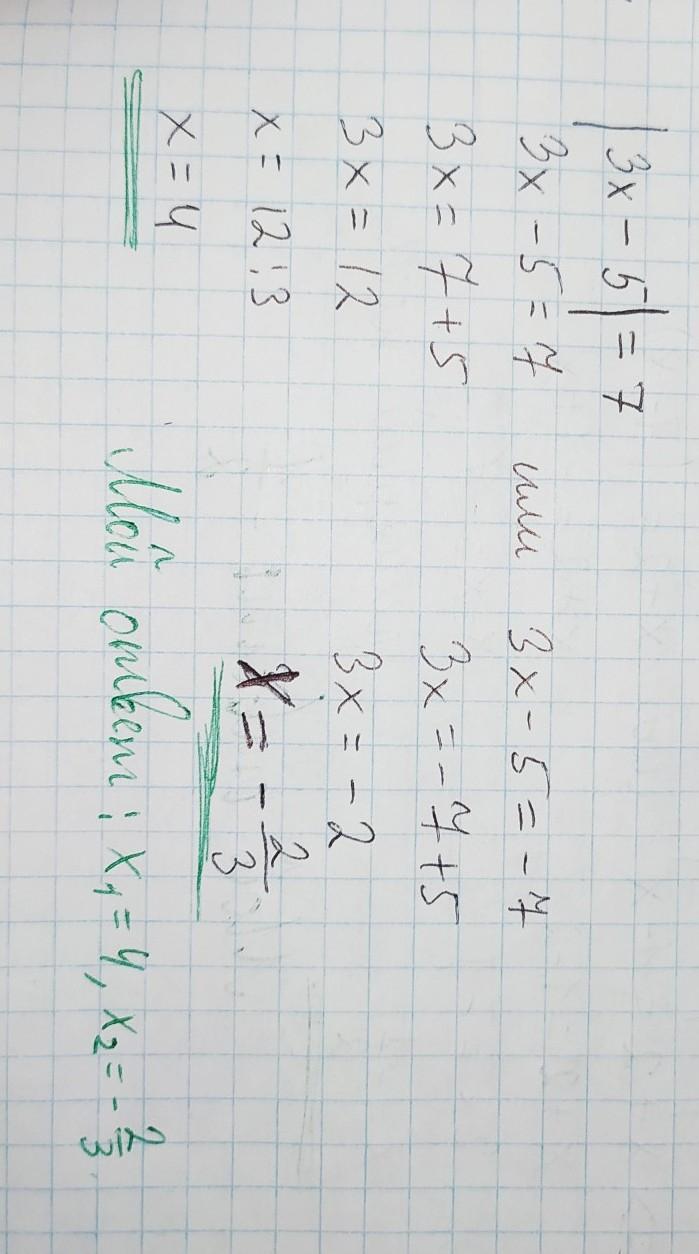 |3x - 5| = 7
3x - 5 = 7 или 3x - 5 = -7
3x = 7 + 5 3x = -7 + 5
3x = 12 3x = -2
x = 12 : 3 x = -2/3
x = 4
Мой ответ: x₁ = 4, x₂ = -2/3